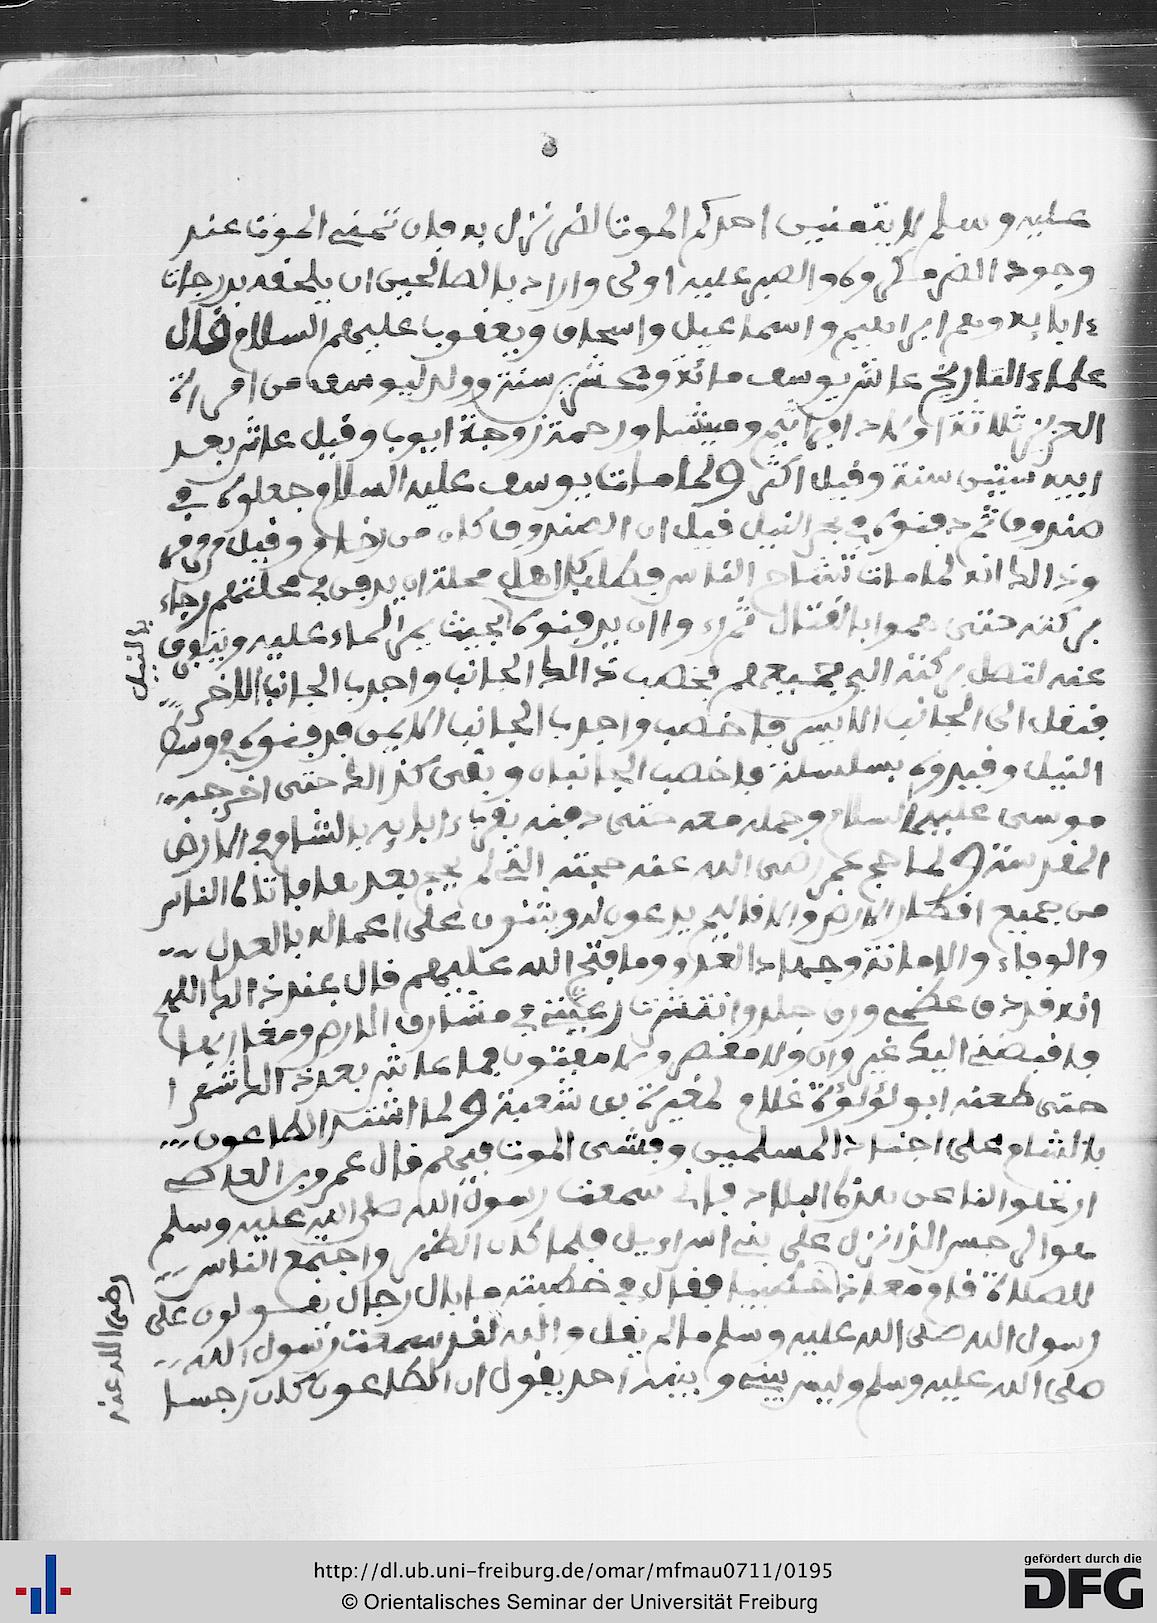 عليه وسلم لا يتمنين احدكم الموت لضر نزل به فان تمنى الموت عند
وجود الضر مكروه والصبر عليه اولى واراد بالصالحين ان يلحقه بدرجات
ءابايه وهم ابراهيم واسماعيل واسحاق ويعقوب عليهم السلام قال
علماء التاريخ عاش يوسف مائة وعشرين سنة وولد ليوسف من امراة
العزيز ثلاثة اولاد افراثيم وميشا ورحمة زوجة ايوب وقيل عاش بعد
ابيه ستين سنة وقيل اكثر ولما مات يوسف عليه السلام جعلوه في
صندوق ثم دفنوه في بحر النيل قيل ان الصندوق كان من رخام وقيل مرمر
وذالك انه لما مات تشاح الناس فطلب كل اهل محلة ان يدفن في محلتهم رجاء
بركته حتى هموا بالقتال ثم رءوا ان يدفنوه بحيث يمر الماء عليه ويتفرق
عنه لتصل بركته الى جميعهم فخصب ذالك الجانب واجدب الجانب الاخر
فنقل الى الجانب الايسر فاخصب واجدب الجانب الايمن فدفنوه في وسط
النيل وقيدوه بسلسلة فاخصب الجانبان وبقى كذالك حتى اخرجه
موسى عليه السلام وحمله معه حتى دفنه بقرب ءابايه بالشام في الارض
المقدسة ولما حج عمر رضى الله عنه حجته التي لم يحج بعدها فاتاه الناس
من جميع اقطار الارض والاقاليم يدعون له ويثنون على اعماله بالعدل
والوفاء والامانة وجهاد العدو وما فتح الله عليهم قال عند ذالك اللهم
انه قد دق عظمى ورق جلدى وانتشرت رعيتي في مشارق الارض ومغاربها
فاقبضني اليك غير وان ولا مقصر ولا مفتون فما عاش بعد ذالك شهرا
حتى طعنه ابو لؤلؤة غلام لمغيرة بن شعبة ولما اشتد الطاعون
بالشام على اجناد المسلمين وفشى الموت فيهم قال عمرو بن العاصى
ارتحلوا بنا عن هذه البلاد فاني سمعت رسول الله صلى الله عليه وسلم
رجس الذي نزل على بني اسراءيل فلما كان الظهر واجتمع الناس
للصلاة قام معاذ خطيبا فقال في خطبته ما بال رجال يقولون على
رسول الله صلى الله عليه وسلم ما لم يقل والله لقد سمعت رسول الله
صلى الله عليه وسلم وليس بيني وبينه احد يقول ان الطاعون كان رجسا
بالنيل
رضى الله عنه
http://dl.ub.uni-freiburg.de/omar/mfmau0711/0195
© Orientalisches Seminar der Universität Freiburg
gefördert durch die
DFG